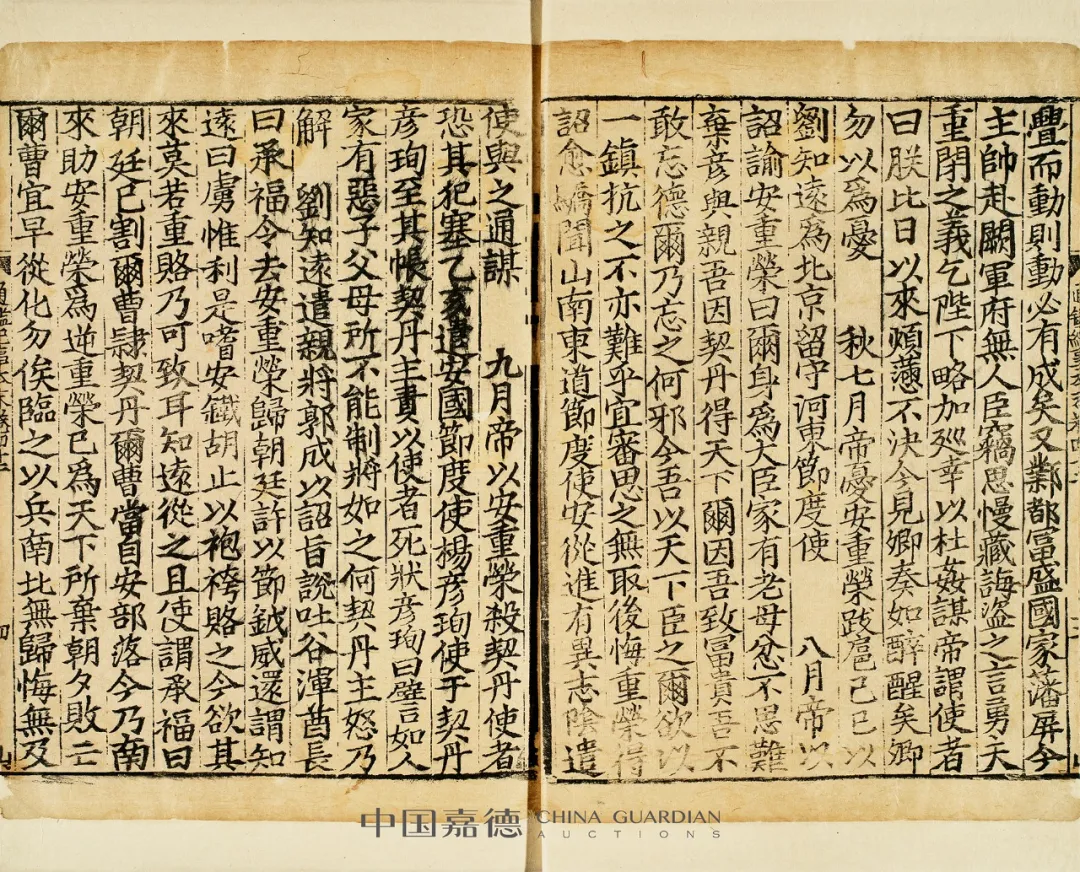 舋而動則動必有成矣又鄴都富盛國家藩屏今
主帥赴闕軍府無人臣竊思慢藏誨盜之言勇夫
重閉之義乞陛下略加廵幸以杜姦謀帝謂使者
曰朕比日以來煩懣不決今見卿奏如醉醒矣卿
勿以爲憂 秋七月帝憂安重榮跋扈己巳以
劉知遠爲北京留守河東節度使 八月帝以
詔諭安重榮曰爾身爲大臣家有老母忿不思難
棄彦與親吾因契丹得天下爾因吾致富貴吾不
敢忘德爾乃忘之何邪今吾以天下臣之爾欲以
一鎮抗之不亦難乎宜審思之無取後悔重榮得
詔愈驕聞山南東道節度使安從進有異志陰遣
使與之通謀 九月帝以安重榮殺契丹使者
恐其犯塞乙亥遣安國節度使楊彦珣使于契丹
彦珣至其帳契丹主責以使者死狀彦珣曰譬如人
家有惡子父母所不能制將如之何契丹主怒乃
解 劉知遠遣親將郭成以詔旨說吐谷渾酋長
曰承福令去安重榮歸朝廷許以節鉞威還謂知
遠曰虜惟利是嗜安鐵胡止以袍袴賂之今欲其
來莫若重賂乃可致耳知遠從之且使謂承福曰
朝廷已割爾曹隷契丹爾曹當自安部落今乃南
來助安重榮爲逆重榮已爲天下所棄朝夕敗亡
爾曹宜早從化勿俟臨之以兵南北無歸悔無及
中国嘉德 CHINA GUARDIAN
AUCTIONS